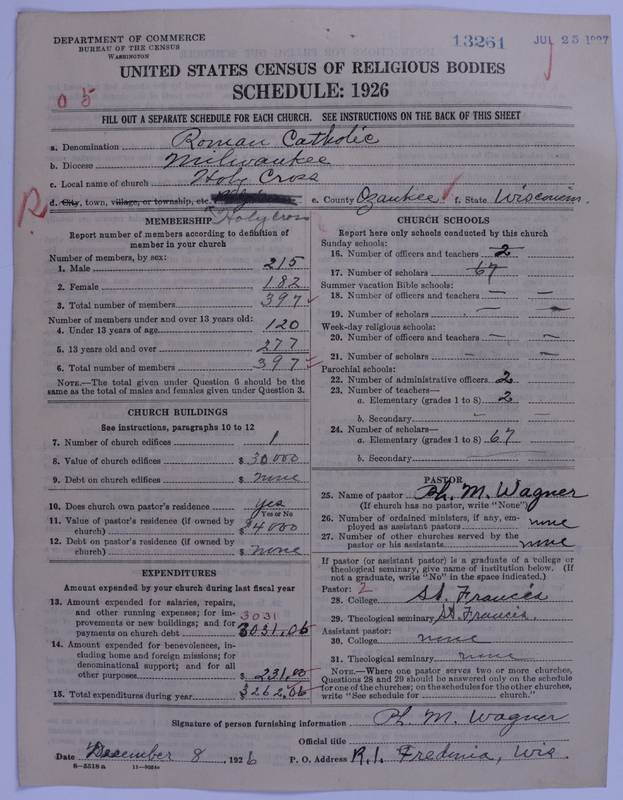 DEPARTMENT OF COMMERCE
BUREAU OF THE CENSUS
WASHINGTON
13261
JUL 25 1927
UNITED STATES CENSUS OF RELIGIOUS BODIES
SCHEDULE: 1926
0 5
FILL OUT A SEPARATE SCHEDULE FOR EACH CHURCH. SEE INSTRUCTIONS ON THE BACK OF THIS SHEET
a. Denomination Roman Catholic
b. Diocese Milwaukee
c. Local name of church Holy Cross
d. City, town, village, or township, etc. e. County Ozaukee f. State Wisconsin.
R
Holy cross
MEMBERSHIP
Report number of members according to definition of member in your church
Number of members, by sex:
1. Male 215
2. Female 182
3. Total number of members 397
Number of members under and over 13 years old:
4. Under 13 years of age 120
5. 13 years old and over 277
6. Total number of members 397
NOTE.—The total given under Question 6 should be
the same as the total of males and females given under Question 3.
CHURCH BUILDINGS
See instructions, paragraphs 10 to 12
7. Number of church edifices 1
8. Value of church edifices $ 30000
9. Debt on church edifices $ none
10. Does church own pastor's residence yes
Yes or No
11. Value of pastor's residence (if owned by
church) $4000
12. Debt on pastor's residence (if owned by
church) $ none
EXPENDITURES
Amount expended by your church during last fiscal year
13. Amount expended for salaries, repairs,
and other running expenses; for im-
provements or new buildings; and for
3031
payments on church debt 3031,05
14. Amount expended for benevolences, in-
cluding home and foreign missions; for
denominational support; and for all
other purposes $ 231,00
15. Total expenditures during year $3262,06
CHURCH SCHOOLS
Report here only schools conducted by this church
Sunday schools:
16. Number of officers and teachers 2
17. Number of scholars 67
Summer vacation Bible schools:
18. Number of officers and teachers — —
19. Number of scholars — —
Week-day religious schools:
20. Number of officers and teachers — —
21. Number of scholars — —
Parochial schools:
22. Number of administrative officers 2
23. Number of teachers—
a. Elementary (grades 1 to 8) 2
b. Secondary — —
24. Number of scholars—
a. Elementary (grades 1 to 8) 67
b. Secondary
PASTOR
25. Name of pastor Ph. M. Wagner
(If church has no pastor, write "None")
26. Number of ordained ministers, if any, em-
ployed as assistant pastors none
27. Number of other churches served by the
pastor or his assistants none
If pastor (or assistant pastor) is a graduate of a college or
theological seminary, give name of institution below. (If
not a graduate, write "No" in the space indicated.)
Pastor: 2
28. College St. Francis
29. Theological seminary St. Francis
Assistant pastor:
30. College none
31. Theological seminary none
NOTE.—Where one pastor serves two or more churches,
Questions 28 and 29 should be answered only on the schedule
for one of the churches; on the schedules for the other churches,
write "See schedule for church."
Signature of person furnishing information Ph. M. Wagner
Official title
Date December 8, 1926 P. O. Address R.1. Fredonia, Wis.
8—5518a